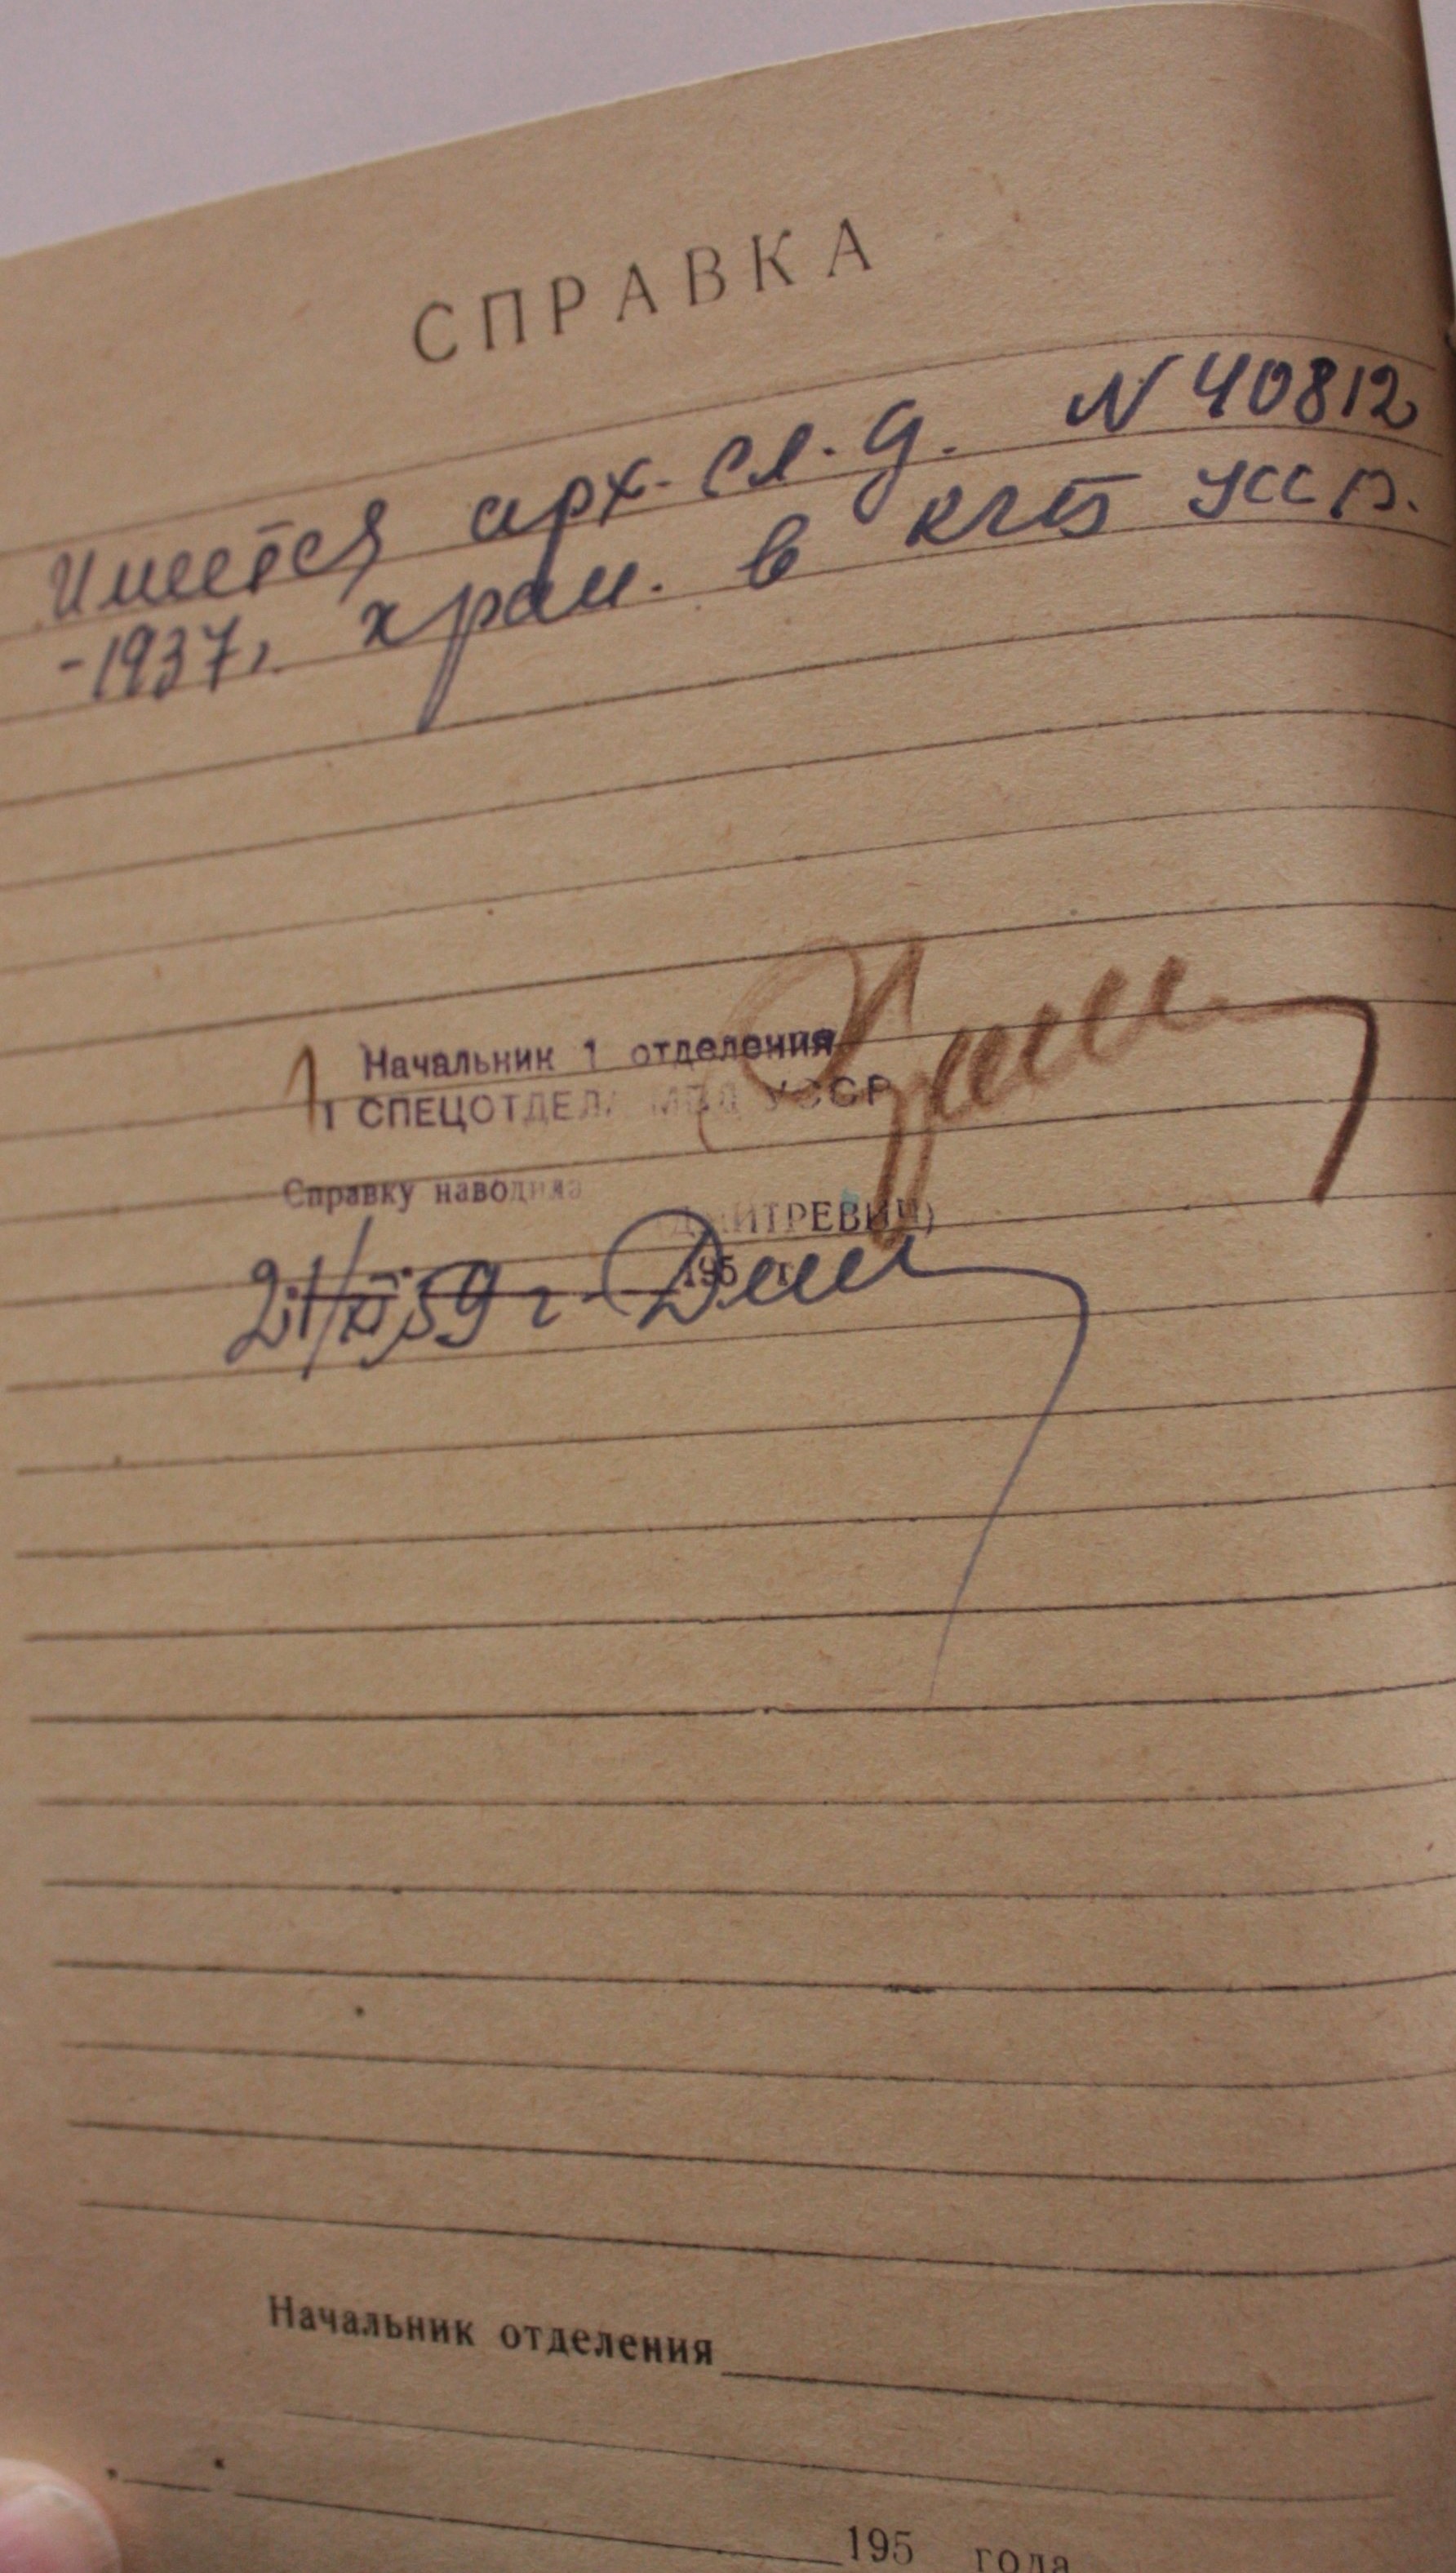 СПРАВКА
Имеется арх. сл. д. N 40812
-1937, хран. в КГБ УССР.
Начальник 1 отделения
1 СПЕЦОТДЕЛА МВД УССР
Справку наводила
(ДМИТРЕВИЧ)
195 г.
59 г.
Начальник отделения
195 года